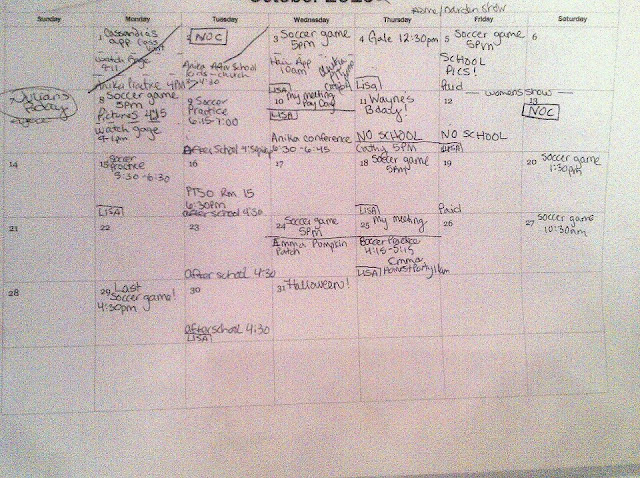 Home/Garden Show
Sunday Monday Tuesday Wednesday Thursday Friday Saturday
1 Cassandra's
app
watch Gage
Anika Practice 4PM
2 NOC
Anika After School
4:30
3 Soccer game
5pm
Hair App
10am
LISA
4 Gate 12:30pm
Lisa
5 Soccer game
5pm
SCHOOL
PICS!
Paid
6
womens show
Jillians
Bday
8 Soccer game
5pm
Pictures 4:45
watch gage
9 Soccer
Practice
6:15-7:00
After School 4:30
10 my meeting
Pay Day
LISA
Anika conference
6:30-6:45
11 Wayne's
Bday!
NO SCHOOL
Cathy 5PM
12
NO SCHOOL
LISA
13
NOC
14
15 Soccer
Practice
5:30-6:30
LISA
16
PTSO Rm 15
6:30pm
after school 4:30
17
18 Soccer game
5pm
LISA
19
Paid
20 Soccer game
1:30pm
21
22
23
after school 4:30
24 Soccer game
5pm
Emma Pumpkin
Patch
25 my meeting
Soccer Practice
4:15-5:15
Emma
LISA Harvest Party 11am
26
27 Soccer game
10:30am
28
29 Last
Soccer game!
4:30pm
30
after school 4:30
LISA
31 Halloween!